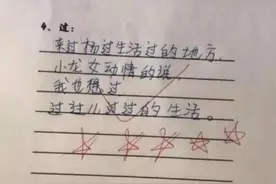 4、过：
来过杨过生活过的地方，
小龙女动情的说
我也想过
过过儿过过的生活。